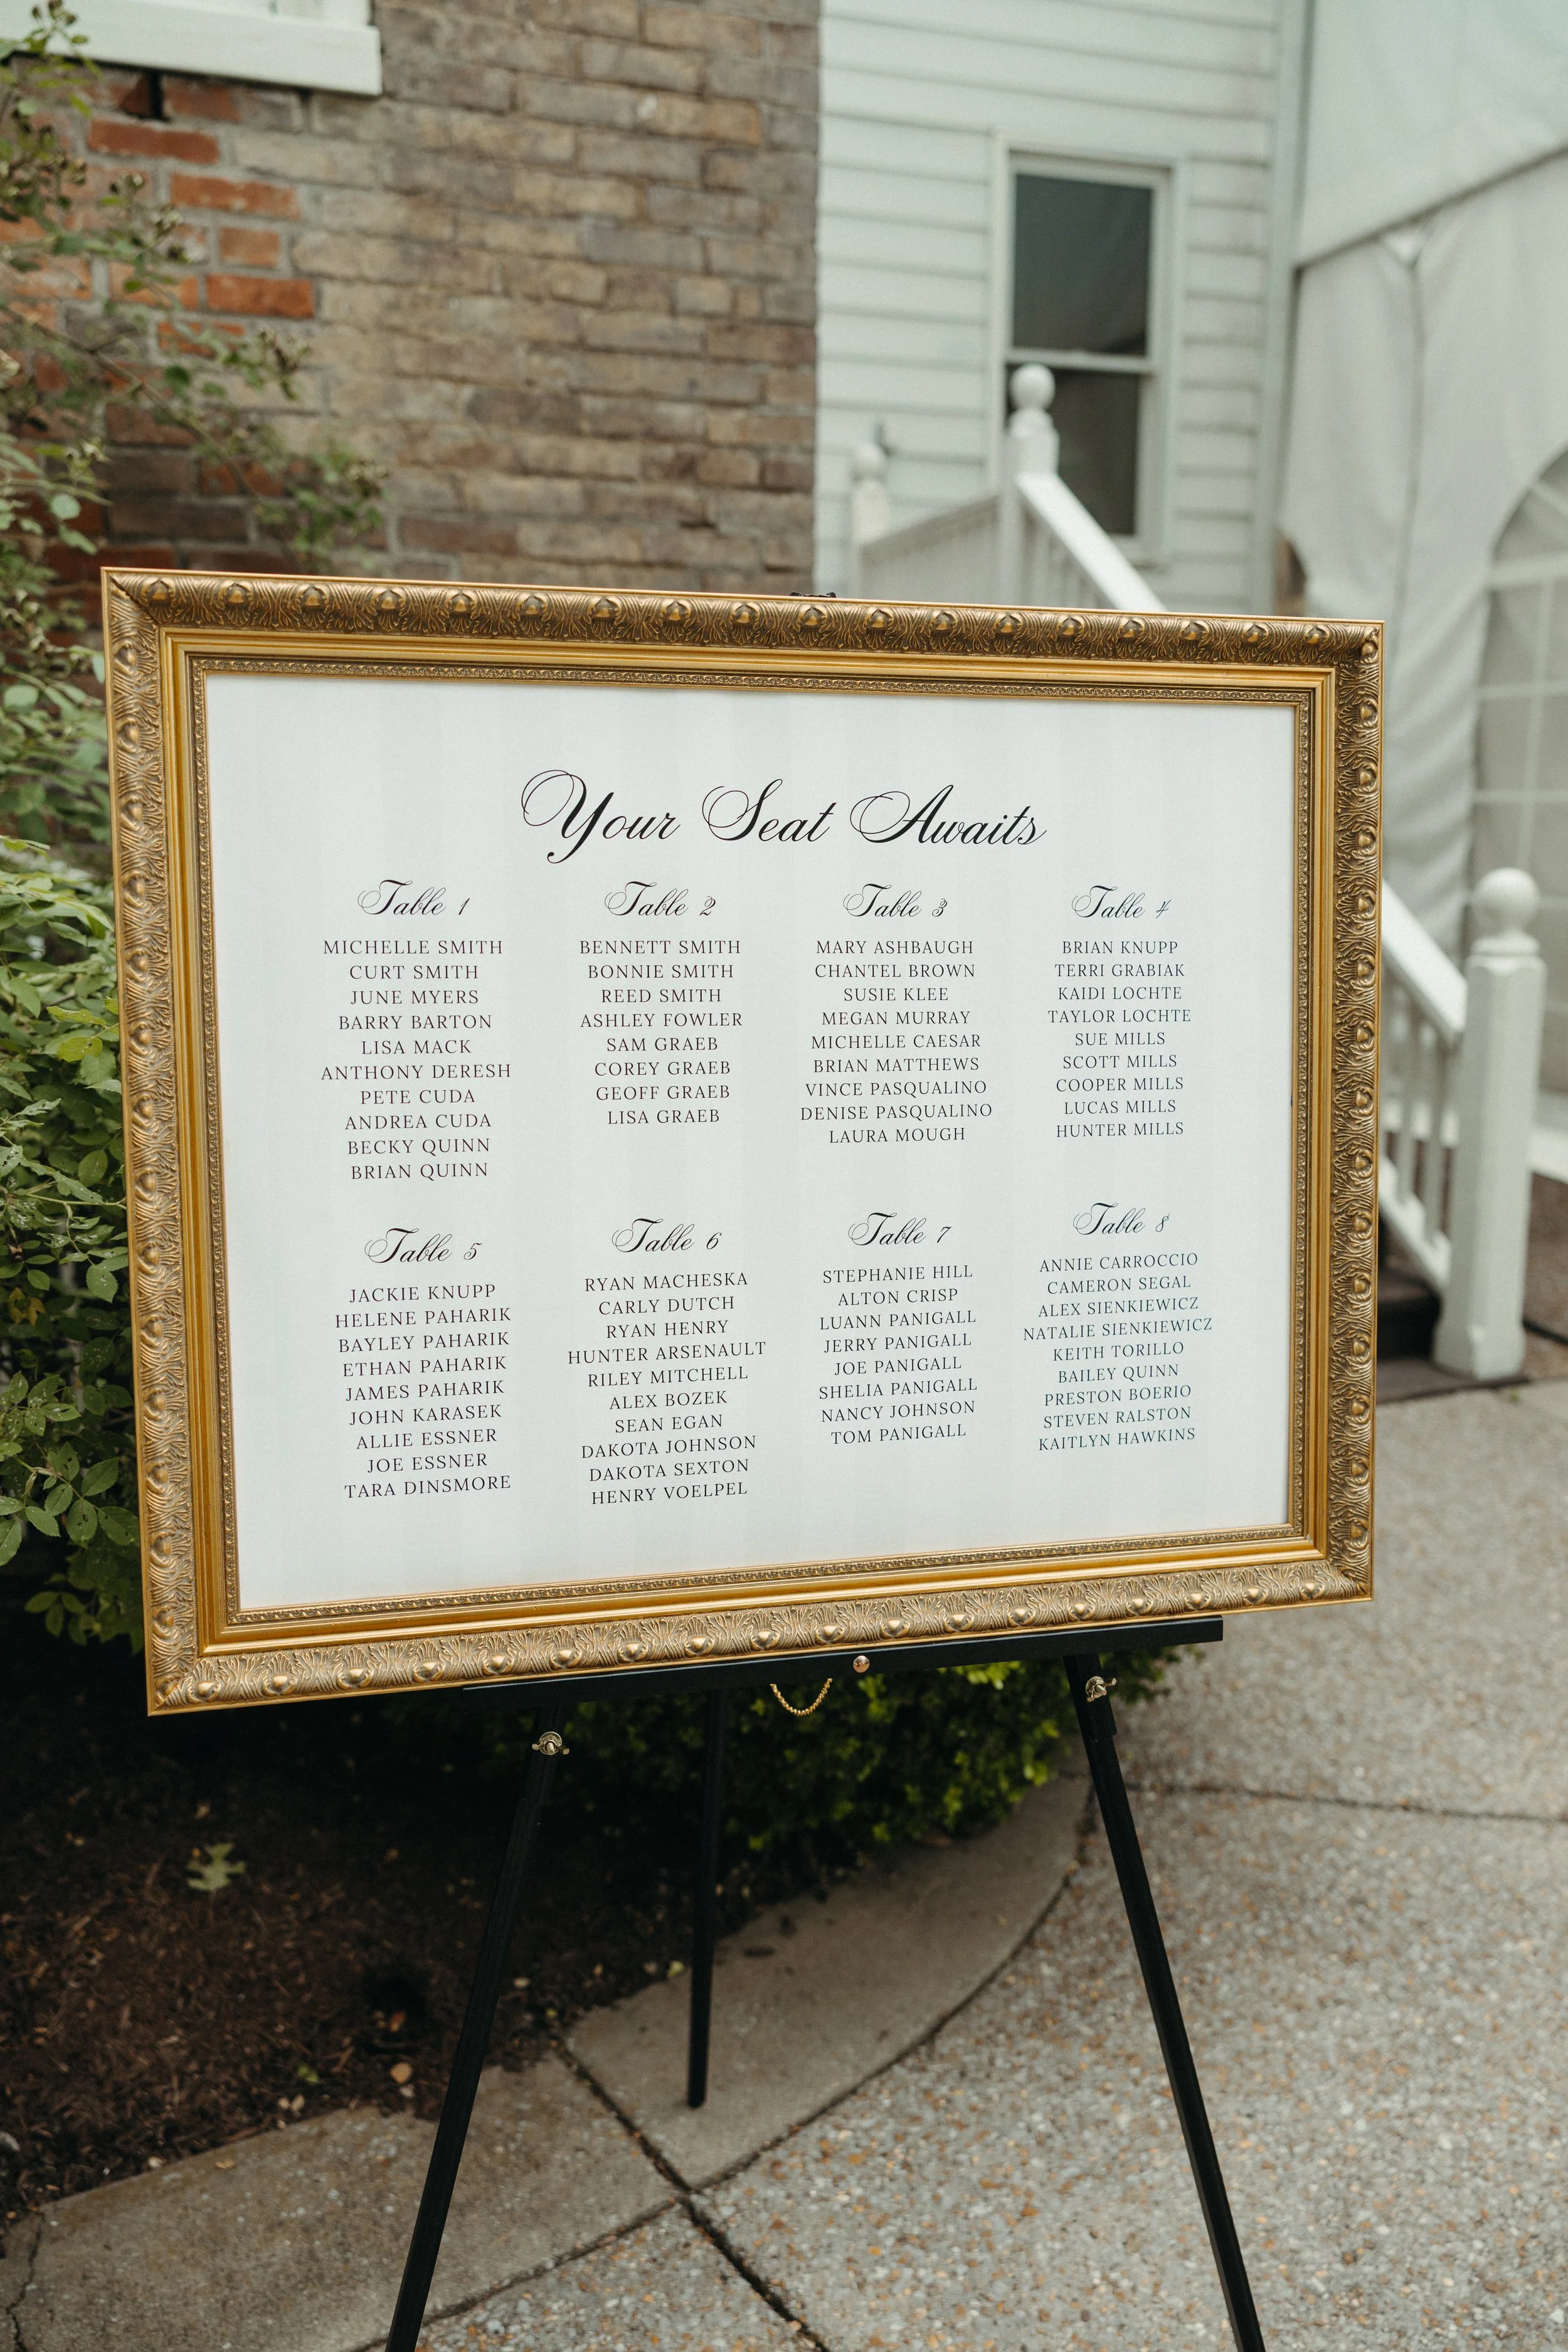 Your Seat Awaits
Table 1
MICHELLE SMITH
CURT SMITH
JUNE MYERS
BARRY BARTON
LISA MACK
ANTHONY DERESH
PETE CUDA
ANDREA CUDA
BECKY QUINN
BRIAN QUINN
Table 2
BENNETT SMITH
BONNIE SMITH
REED SMITH
ASHLEY FOWLER
SAM GRAEB
COREY GRAEB
GEOFF GRAEB
LISA GRAEB
Table 3
MARY ASHBAUGH
CHANTEL BROWN
SUSIE KLEE
MEGAN MURRAY
MICHELLE CAESAR
BRIAN MATTHEWS
VINCE PASQUALINO
DENISE PASQUALINO
LAURA MOUGH
Table 4
BRIAN KNUPP
TERRI GRABIAK
KAIDI LOCHTE
TAYLOR LOCHTE
SUE MILLS
SCOTT MILLS
COOPER MILLS
LUCAS MILLS
HUNTER MILLS
Table 5
JACKIE KNUPP
HELENE PAHARIK
BAYLEY PAHARIK
ETHAN PAHARIK
JAMES PAHARIK
JOHN KARASEK
ALLIE ESSNER
JOE ESSNER
TARA DINSMORE
Table 6
RYAN MACHESKA
CARLY DUTCH
RYAN HENRY
HUNTER ARSENAULT
RILEY MITCHELL
ALEX BOZEK
SEAN EGAN
DAKOTA JOHNSON
DAKOTA SEXTON
HENRY VOELPEL
Table 7
STEPHANIE HILL
ALTON CRISP
LUANN PANIGALL
JERRY PANIGALL
JOE PANIGALL
SHELIA PANIGALL
NANCY JOHNSON
TOM PANIGALL
Table 8
ANNIE CARROCCIO
CAMERON SEGAL
ALEX SIENKIEWICZ
NATALIE SIENKIEWICZ
KEITH TORILLO
BAILEY QUINN
PRESTON BOERIO
STEVEN RALSTON
KAITLYN HAWKINS